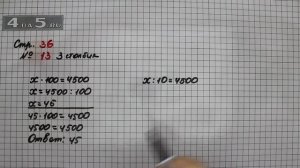 4
НА
5.RU
Стр. 36
№ 13 3 столбик
x · 100 = 4500
x = 4500 : 100
x = 45
45 · 100 = 4500
4500 = 4500
Ответ: 45
x : 10 = 4500